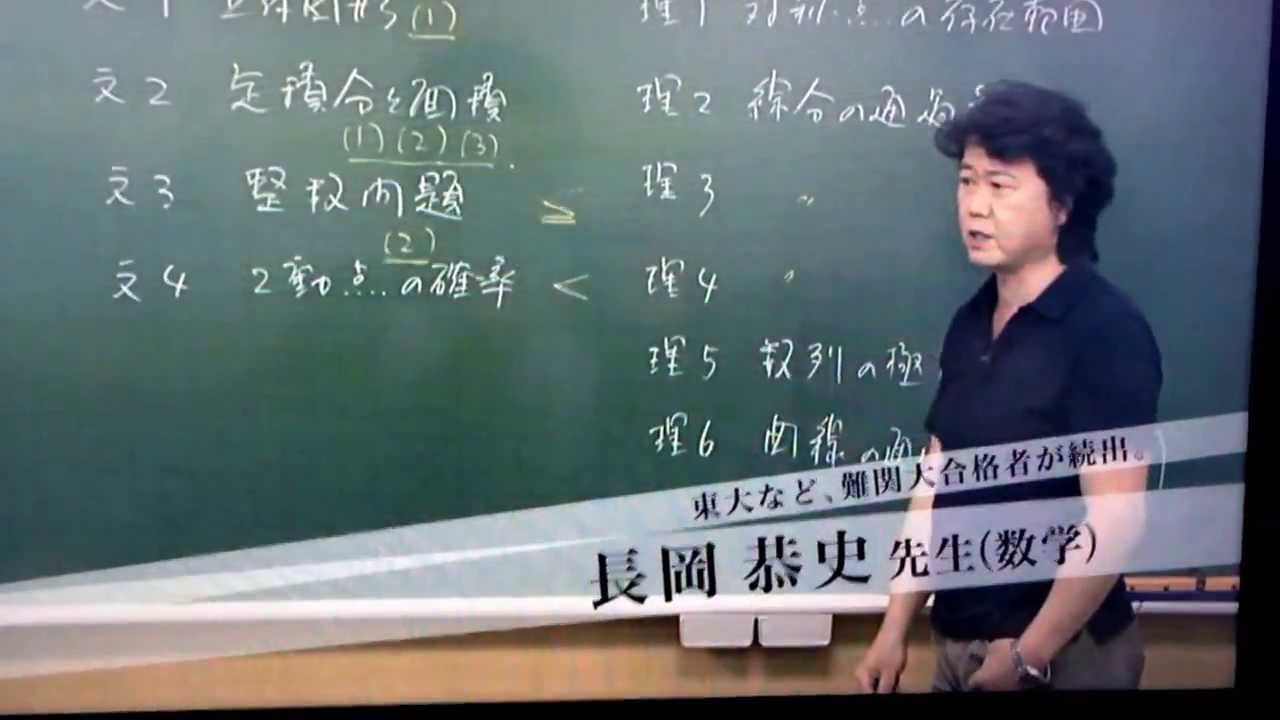 文1 立体図形 (1)
文2 定積分と面積
(1)(2)(3)
文3 整数問題 ≧
(2)
文4 2動点の確率 <
理1 対称点の存在範囲
理2 線分の通過
理3 〃
理4 〃
理5 数列の極
理6 曲線の通
東大など、難関大合格者が続出。
長岡 恭史 先生(数学)